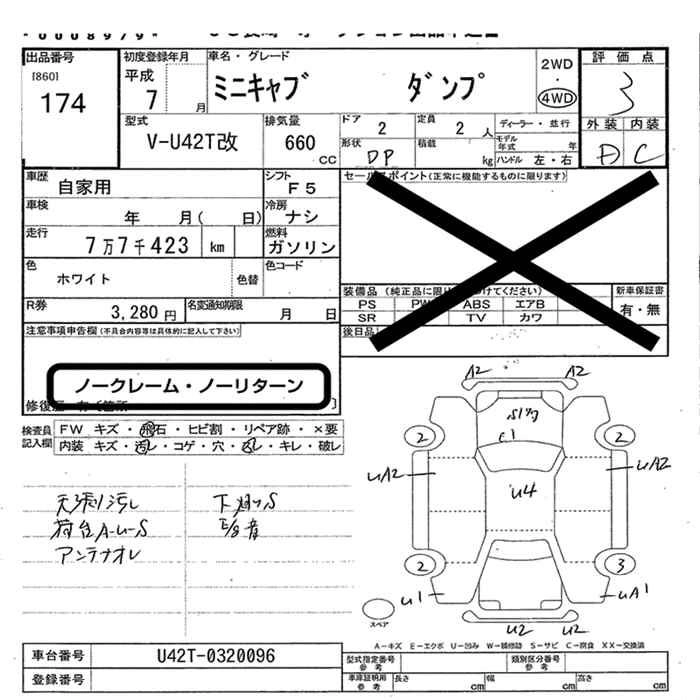 出品番号
[860]
174
初度登録年月
平成
7 月
車名・グレード
ミニキャブ ダンプ
2WD
・
4WD
評価点
3
外装 内装
D C
型式
V-U42T改
排気量
660
CC
ドア
2
定員
2 人
形状
DP
積載
kg
ディーラー・並行
モデル年式 年
ハンドル 左・右
車歴
自家用
シフト
F5
車検
年 月( 日)
冷房
ナシ
走行
7万7千423 km
燃料
ガソリン
色
ホワイト
色替
色コード
R券
3,280 円
名変通知期限
月 日
セールスポイント(正常に機能するものに限ります)
装備品
PS PW ABS エアB
SR TV カワ
新車保証書
有・無
後日品
注意事項申告欄(不具合内容等は具体的に記入して下さい)
ノークレーム・ノーリターン
検査員
記入欄
FW キズ・飛石・ヒビ割・リペア跡・×要
内装 キズ・汚れ・コゲ・穴・切れ・キレ・破レ
天張り汚レ
荷台A-U-S
アンテナオレ
下廻りS
E/g音
A2 A2
S17g
C1
2 2
UA2 UA2
U4
2 3
U1 UA1
U2 U2
スペア
A－キズ E－エクボ U－凹み W－補修跡 S－サビ C－腐食 XX－交換済
車台番号
U42T-0320096
登録番号
型式指定番号
参考
類別区分番号
参考
車庫証明用
参考
長さ cm
幅 cm
高さ cm